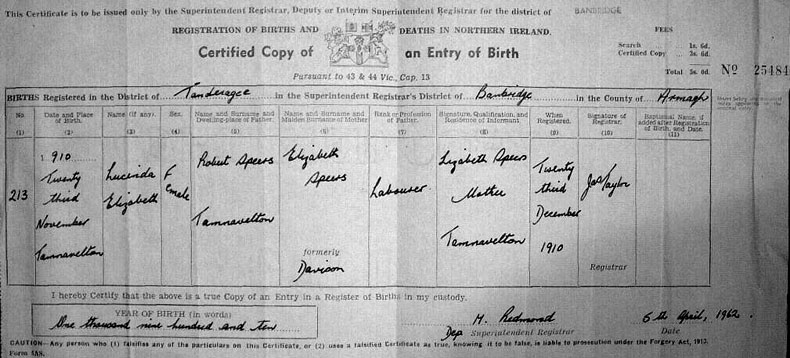 This Certificate is to be issued only by the Superintendent Registrar, Deputy or Interim Superintendent Registrar for the district of BANBRIDGE
REGISTRATION OF BIRTHS AND DEATHS IN NORTHERN IRELAND.
Certified Copy of an Entry of Birth
Pursuant to 43 & 44 Vic., Cap. 13
FEES
Search 1s. 6d.
Certified Copy 2s. 6d.
Total 3s. 6d.
No 25484
BIRTHS Registered in the District of Tanderagee in the Superintendent Registrar's District of Banbridge in the County of Armagh
No. (1)
Date and Place of Birth. (2)
Name (if any). (3)
Sex. (4)
Name and Surname and Dwelling-place of Father. (5)
Name and Surname and Maiden Surname of Mother (6)
Rank or Profession of Father. (7)
Signature, Qualification, and Residence of Informant. (8)
When Registered. (9)
Signature of Registrar. (10)
Baptismal Name, if added after Registration of Birth, and Date. (11)
213
1910
Twenty
third
November
Tamnavelton
Lucinda
Elizabeth
F
emale
Robert Speers
Tamnavelton
Elizabeth
Speers
formerly
Davison
Labourer
Lizabeth Speers
Mother
Tamnavelton
Twenty
third
December
1910
Jas Taylor
Registrar
I hereby Certify that the above is a true Copy of an Entry in a Register of Births in my custody.
YEAR OF BIRTH (in words)
One thousand nine hundred and ten
H. Redmond
Dep Superintendent Registrar
6th April, 1962.
Date
CAUTION—Any person who (1) falsifies any of the particulars on this Certificate, or (2) uses a falsified Certificate as true, knowing it to be false, is liable to prosecution under the Forgery Act, 1913.
Form 1AS.